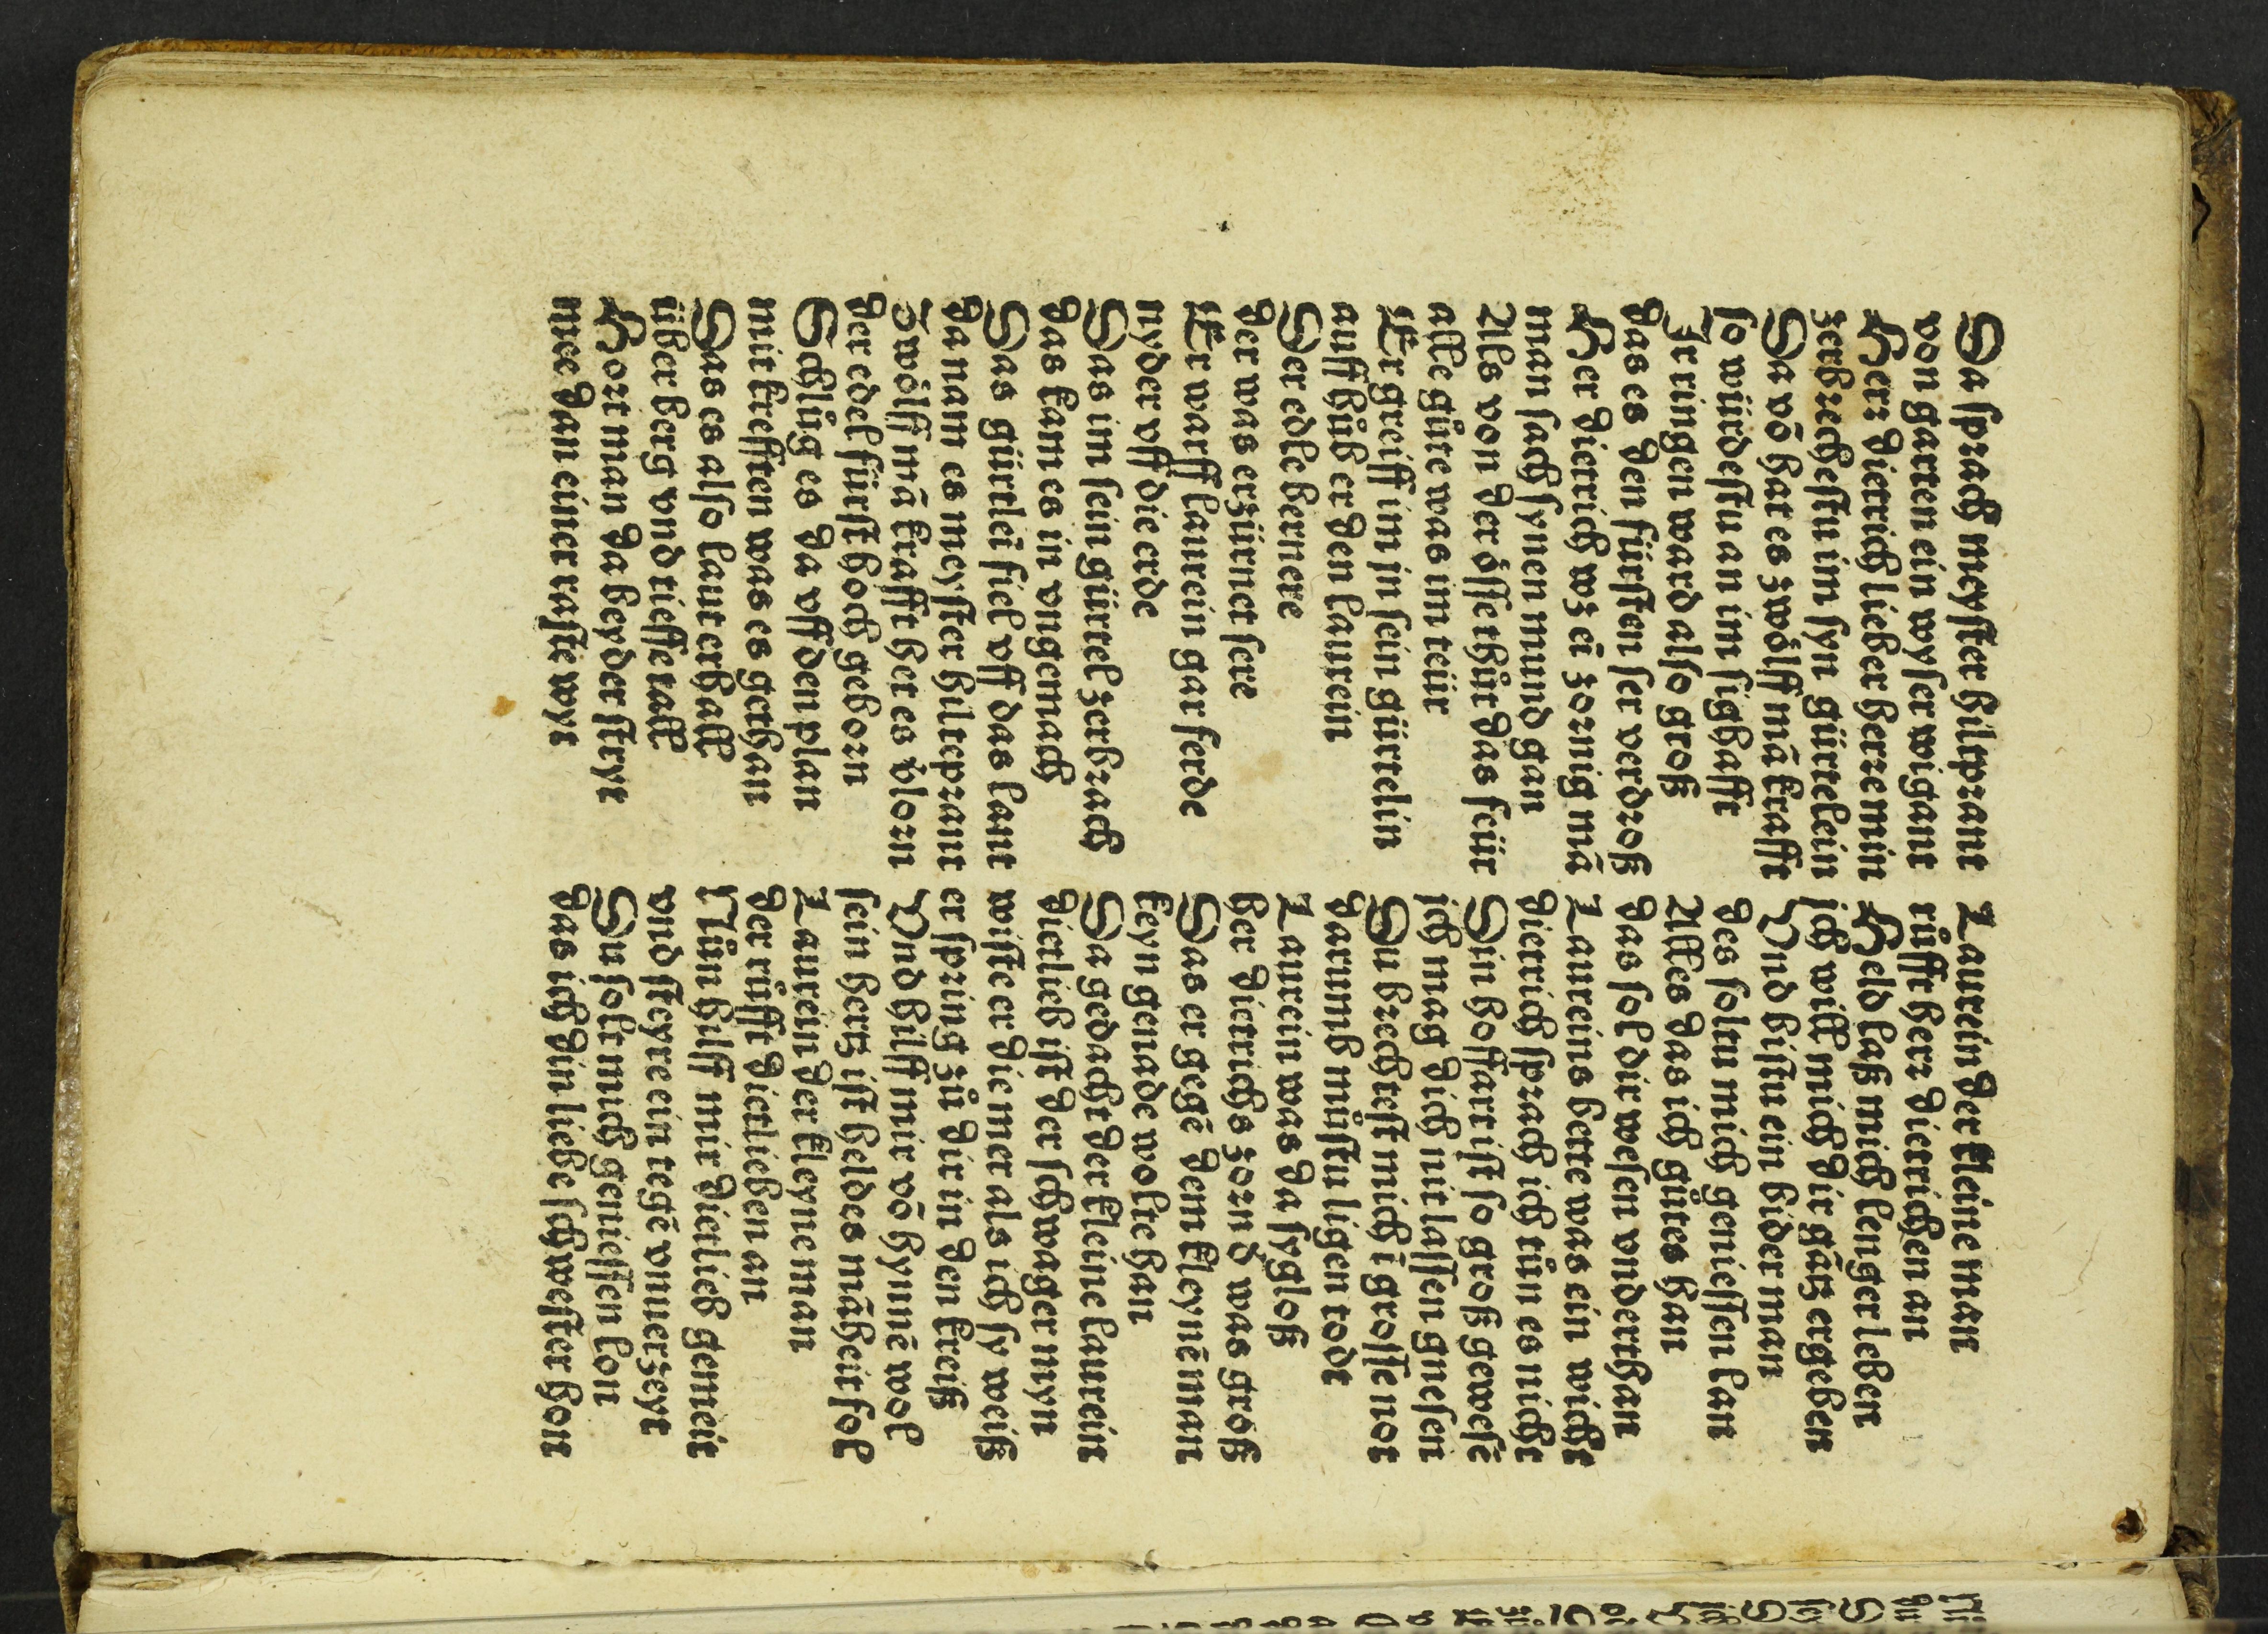 Da ſprach meyſter hiltprant
von garten ein wyſer wigant
Herꝛ dietrich lieber herꝛe min
zerbꝛecheſtu im ſyn gürtelein
Da vō hat es zwoͤlff mā krafft
ſo würdeſtu an im ſighafft
Ir ringen ward alſo groß
das es den fürſten ſer verdꝛoß
Her dietrich wz eī zoꝛnig mā
man ſach ſynen mund gan
Als von der oͤſſe thůt das feür
alle guͤte was im teür
Er greiff im in ſein gürtelin
auff hůb er den laurein
Der edle bernere
der was erzürnet ſere
Er warff laurein gar ſerde
nyder vff die erde
Das im ſein gürtel zerbꝛach
das kam es in vngemach
Das gürtelī fiel vff das lant
da nam es meyſter hilteprant
Zwoͤlff mā krafft het es v̓loꝛn
der edel fürſt hoch geboꝛn
Schlůg es da vff den plan
mit krefften was es gethan
Das es alſo laut erhall
über berg vnd tieffe tall
Hoꝛt man da beyder ſtryt
mee dan einer raſte wyt
Laurein der kleine man
růfft herꝛ dietrichen an
Held laß mich lenger leben
ich will mich dir gātz ergeben
Vnd biſtu ein biderman
des ſoltu mich genieſſen lan
Alles das ich gůtes han
das ſol dir weſen vnderthan
Laureins bette was ein wicht
dietrich ſpꝛach ich tůn es nicht
Din hoffart iſt ſo groß geweſē
ich mag dich nit laſſen gneſen
Du bꝛechteſt mich ī groſſe not
darumb můſtu ligen todt
Laurein was da ſygloß
her dietrichs zoꝛn d̓ was groß
Das er gegē dem kleynē man
keyn genade wolte han
Da gedacht der kleine laurein
dietlieb iſt der ſchwager myn
wiſte er die mer als ich ſy weiß
er ſpꝛing zů dir in den kreiß
Vnd hilff mir vō hynnē wol
ſein hertz iſt heldes māheit fol
Laurein der kleyne man
der růfft dietlieben an
Nůn hilff mir dietlieb gemeit
vnd ſteyre ein tegē vnuerzeyt
Du ſolt mich genieſſen lon
das ich din liebe ſchweſter hon